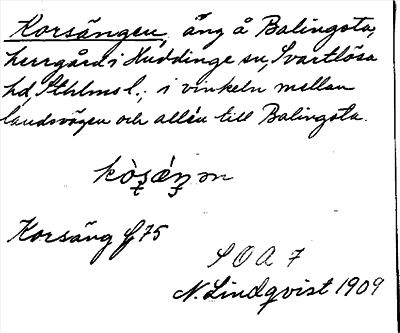 Korsängen, äng å Balingsta,
herrgård i Huddinge sn, Svartlösa
hd, Sthlms l.; i vinkeln mellan
landsvägen och allén till Balingsta.
Korsäng f 75
SOA 7
N. Lindqvist 1909